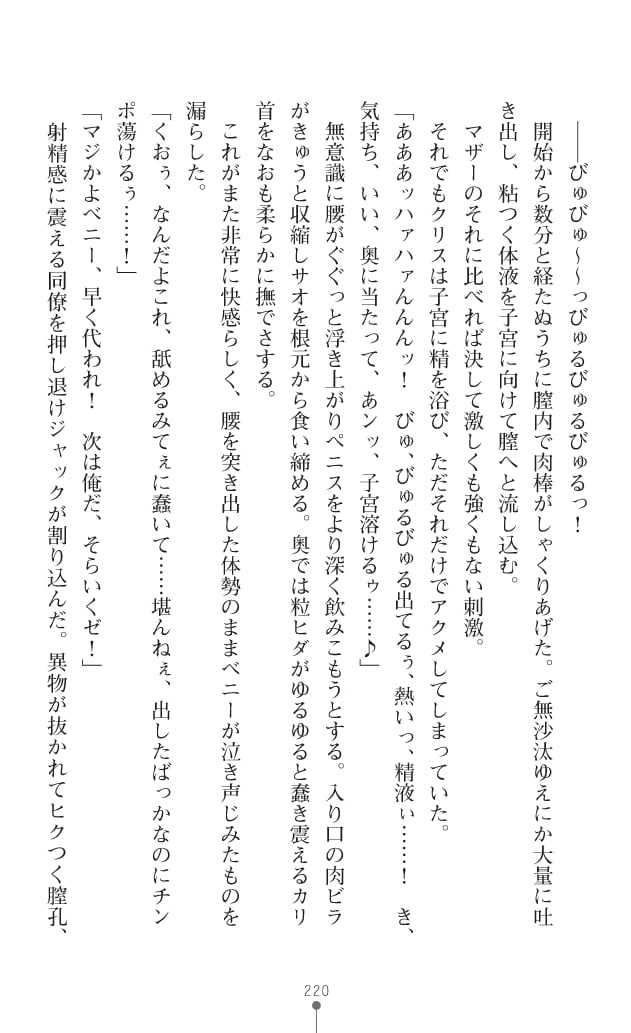 ――びゅびゅ〜〜っびゅるびゅるびゅるっ！
開始から数分と経たぬうちに膣内で肉棒がしゃくりあげた。ご無沙汰ゆえにか大量に吐
き出し、粘つく体液を子宮に向けて膣へと流し込む。
マザーのそれに比べれば決して激しくも強くもない刺激。
それでもクリスは子宮に精を浴び、ただそれだけでアクメしてしまっていた。
「あああッハァハァんんんッ！　びゅ、びゅるびゅる出てるぅ、熱いっ、精液ぃ……！　き、
気持ち、いい、奥に当たって、あンッ、子宮溶けるゥ……♪」
無意識に腰がぐぐっと浮き上がりペニスをより深く飲みこもうとする。入り口の肉ビラ
がきゅうと収縮しサオを根元から食い締める。奥では粒ヒダがゆるゆると蠢き震えるカリ
首をなおも柔らかに撫でさする。
これがまた非常に快感らしく、腰を突き出した体勢のままベニーが泣き声じみたものを
漏らした。
「くおぅ、なんだよこれ、舐めるみてぇに蠢いて……堪んねぇ、出したばっかなのにチン
ポ蕩けるぅ……！」
「マジかよベニー、早く代われ！　次は俺だ、そらいくゼ！」
射精感に震える同僚を押し退けジャックが割り込んだ。異物が抜かれてヒクつく膣孔、
220